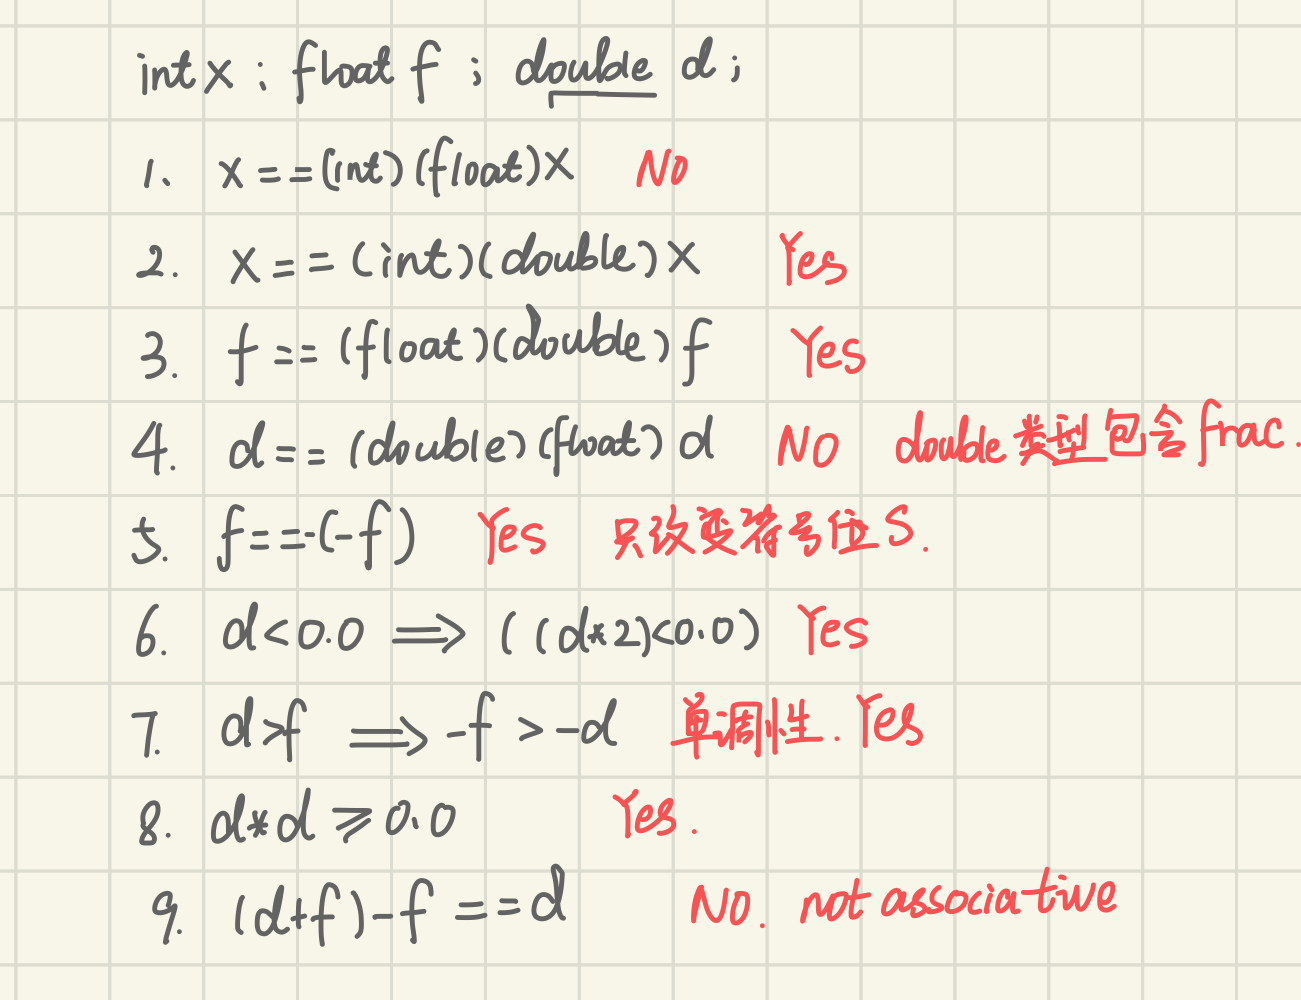 int x ; float f ; double d ;
1. x == (int)(float)x No
2. x == (int)(double)x Yes
3. f == (float)(double)f Yes
4. d == (double)(float)d NO double类型包含frac.
5. f == -(-f) Yes 只改变符号位S.
6. d<0.0 ⟹ ((d*2)<0.0) Yes
7. d>f ⟹ -f > -d 单调性. Yes
8. d*d ⩾ 0.0 Yes.
9. (d+f)-f == d NO. not associative